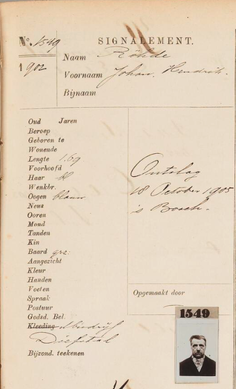 No. 1549 SIGNALEMENT.
1902
Naam Rohde
Voornaam Johan Hendrik
Bijnaam
Oud Jaren
Beroep
Geboren te
Wonende
Lengte 169
Voorhoofd
Haar bl
Wenkbr.
Oogen blauw
Neus
Ooren
Mond
Tanden
Kin
Baard
Aangezicht
Kleur
Handen
Voeten
Spraak
Postuur
Godsd. Bel.
Kleeding
Diefstal
Bijzond. teekenen
Ontslag
18 October 1905
's Bosch.
Opgemaakt door
1549